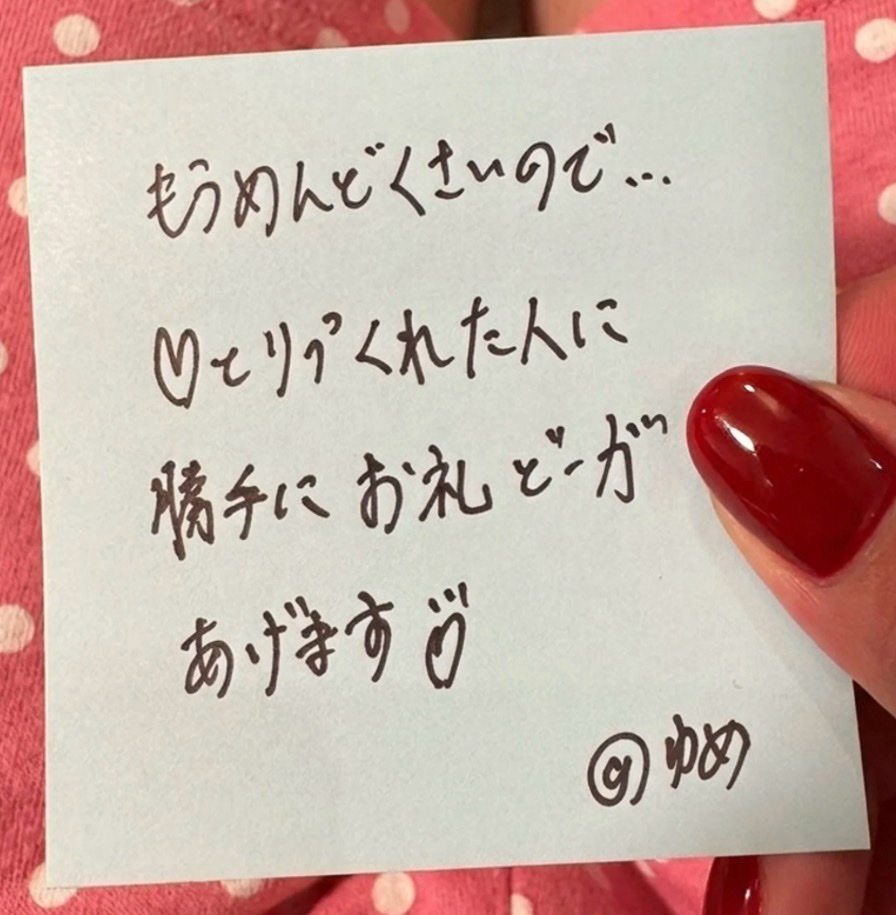 もうめんどくさいので…
♡とリプくれた人に
勝手にお礼どーが
あげます♡
@ゆめ